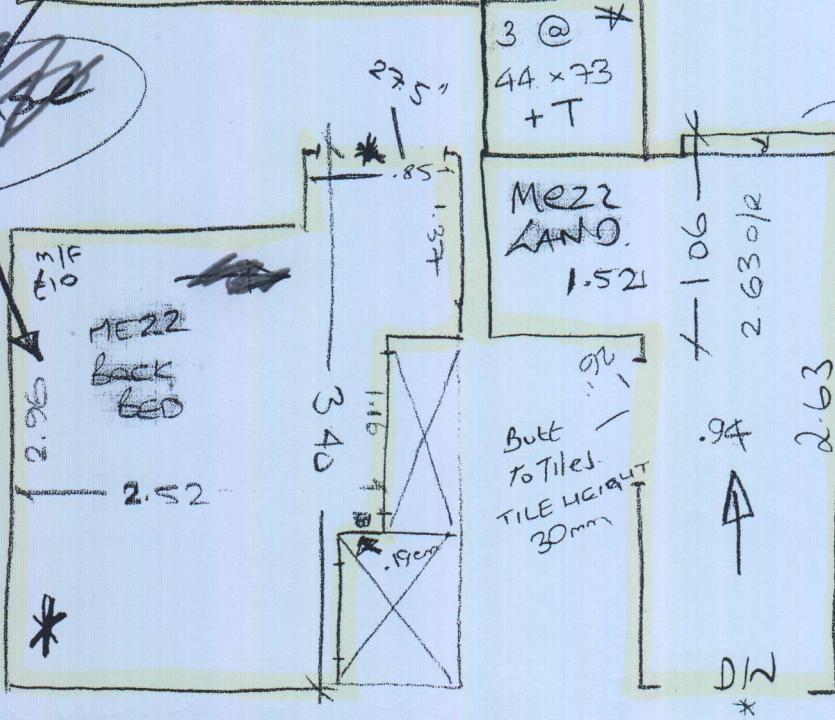 3 @
44 × 73
+ T
27.5"
.85
1.37
MEZZ
LAND.
1.52
106
2.63 O/R
3/F
MEZZ
BACK
BED
2.96
2.52
340
1.16
.19cm
26"
Butt
To Tiles.
TILE HEIGHT
30mm
.94
2.63
D/W